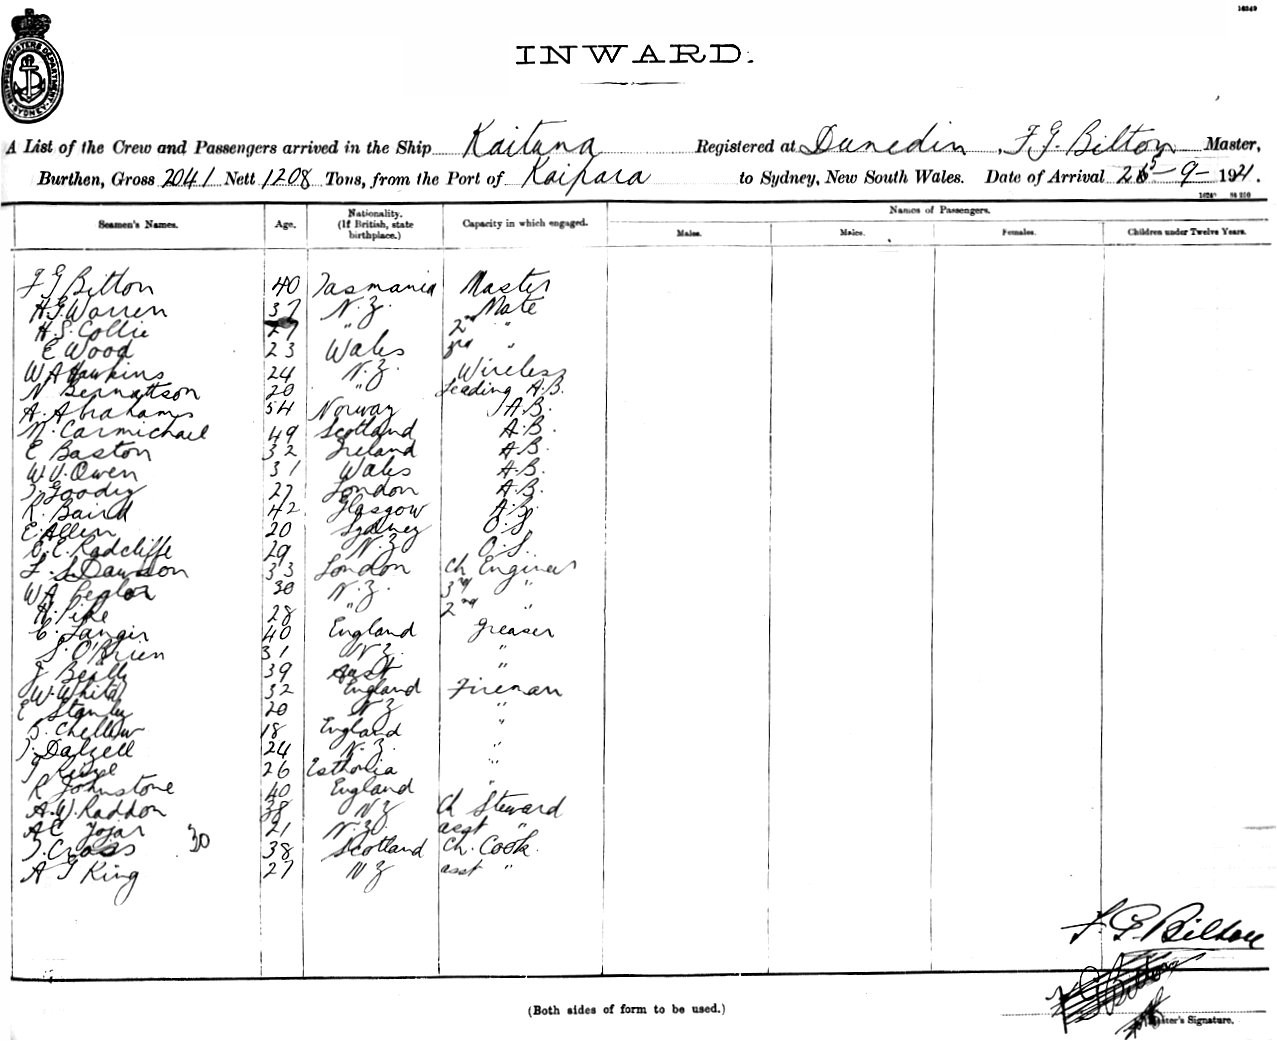 16249
SHIPPING MASTERS DEPARTMENT SYDNEY
INWARD.
A List of the Crew and Passengers arrived in the Ship Kaituna Registered at Dunedin, F G. Bilton Master,
Burthen, Gross 2041 Nett 1208 Tons, from the Port of Kaipara to Sydney, New South Wales. Date of Arrival 25-9-1921.
Names of Passengers.
Seamen's Names. Age. Nationality. (If British, state birthplace.) Capacity in which engaged. Males. Males. Females. Children under Twelve Years.
F G Bilton 40 Tasmania Master
H.G. Warren 37 N.Z. Mate
H.S. Collie 27 " 2nd "
E Wood 23 Wales 3rd "
W A Hawkins 24 N.Z. Wireless
N Bernattson 20 " Leading A.B.
A. Abrahams 54 Norway A.B.
N. Carmichael 49 Scotland A.B.
E Baston 32 Ireland A.B.
W.V. Owen 31 Wales A.B.
Goodey 27 London A.B.
R. Baird 42 Glasgow A.B.
E. Allen 20 Sydney O.S.
C.E. Radcliffe 29 N.Z O.S.
F. S. Dawson 33 London Ch Engineer
W A 30 N.Z. 3rd "
H. Pike 28 " 2nd "
C. 40 England Greaser
S. O'Brien 31 N.Z. "
J 39 Aust "
W. White 32 England Fireman
E Stanley 20 N Z "
B. Chellew 18 England "
J. Dalzell 24 N.Z. "
26 Esthonia "
R Johnstone 40 England "
A.W. Raddon 38 N Z Ch Steward
A C 21 N.Z. asst "
J. Cross 30 38 Scotland Ch. Cook.
A G King 27 N Z asst "
F. G. Bilton
(Both sides of form to be used.)
Master's Signature.